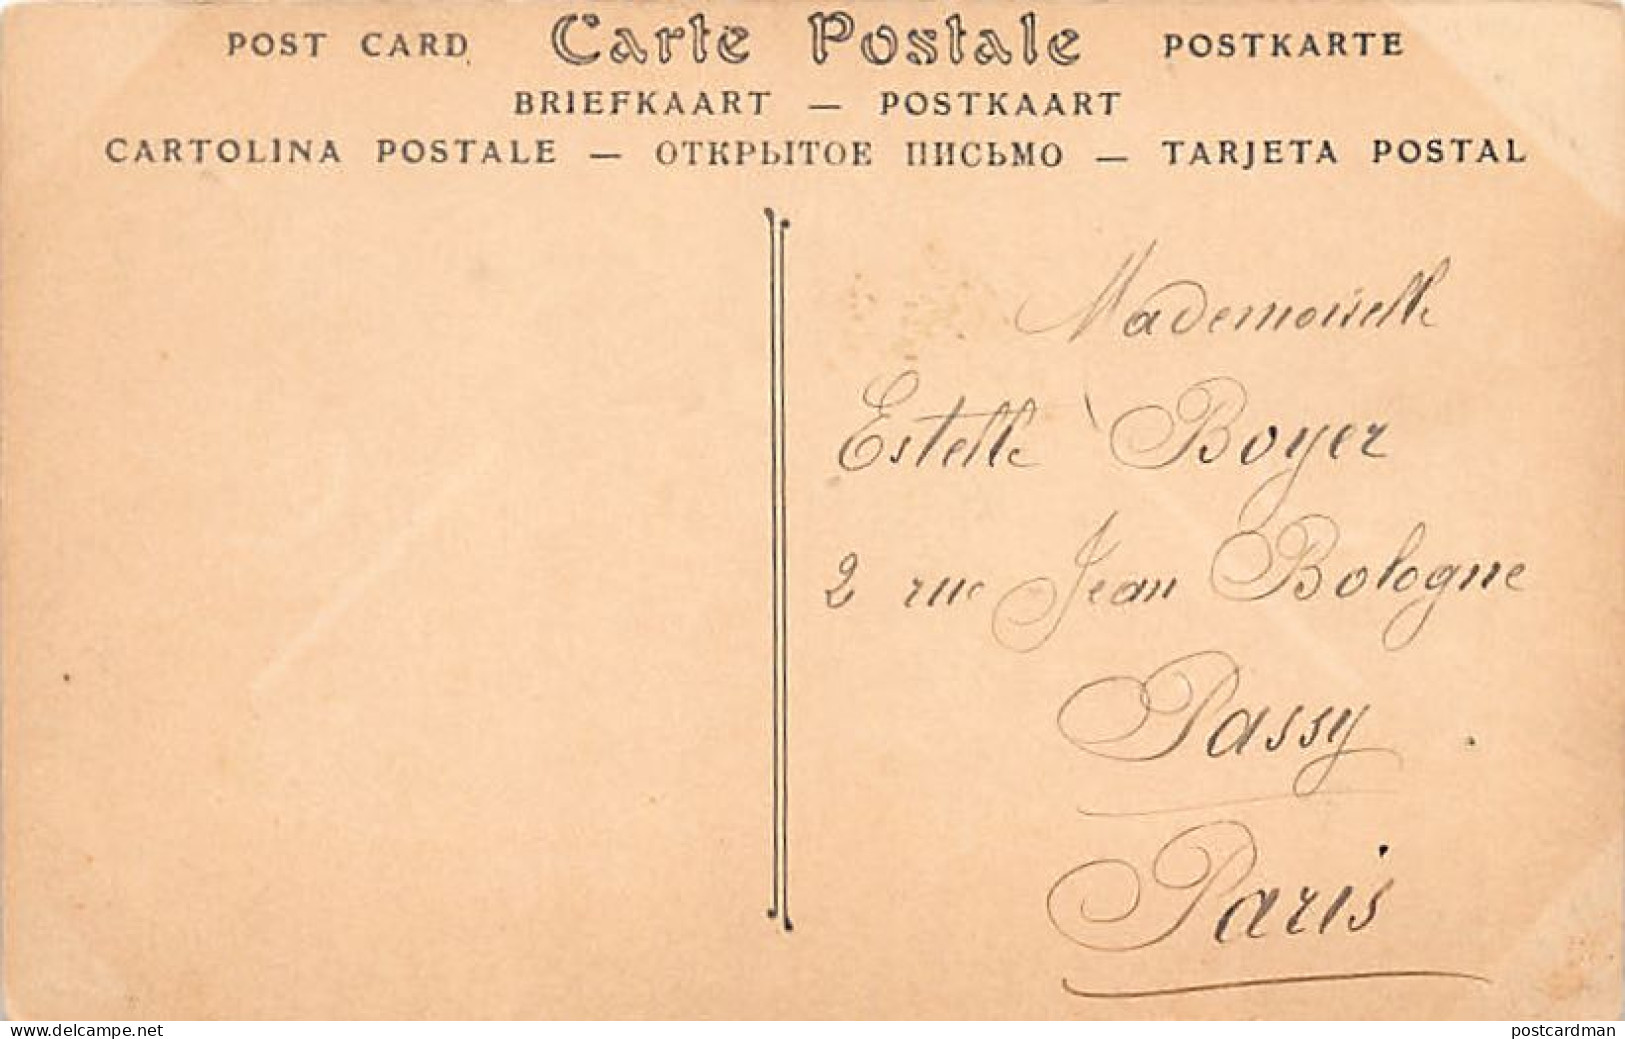 POST CARD Carte Postale POSTKARTE
BRIEFKAART — POSTKAART
CARTOLINA POSTALE — ОТКРЫТОЕ ПИСЬМО — TARJETA POSTAL
Mademoiselle
Estelle Boyer
2 rue Jean Bologne
Passy
Paris
www.delcampe.net
postcardman